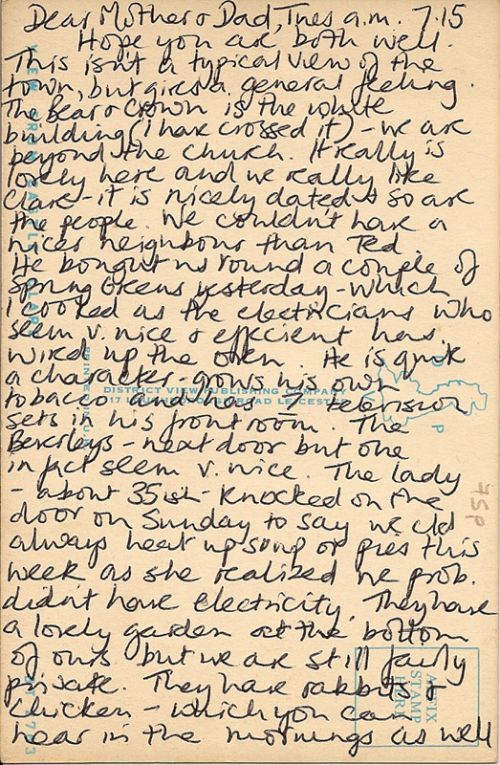 Dear Mother & Dad, Tues a.m. 7.15
Hope you are both well.
This isn't a typical view of the
town, but gives a general feeling.
The Bear & Crown is the white
building (I have crossed it) - we are
beyond the church. It really is
lovely here and we really like
Clare - it is nicely dated & so are
the people. We couldn't have a
nicer neighbour than Ted.
He bought us round a couple of
Spring Greens yesterday - which
I cooked as the electricians who
seem v. nice & efficient have
wired up the oven. He is quite
a character - grows his own
DISTRICT VIEW PUBLISHING COMPANY
tobacco and has 7 television
LEICESTER
sets in his front room. The
Beverleys - next door but one
in fact seem v. nice. The lady
- about 35ish - knocked on the
75p
door on Sunday to say we cld
always heat up soup or pies this
week as she realized we prob.
didn't have electricity. They have
a lovely garden at the bottom
of ours but we are still fairly
AFFIX
STAMP
HERE
private. They have rabbits &
chicken - which you can
hear in the mornings as well